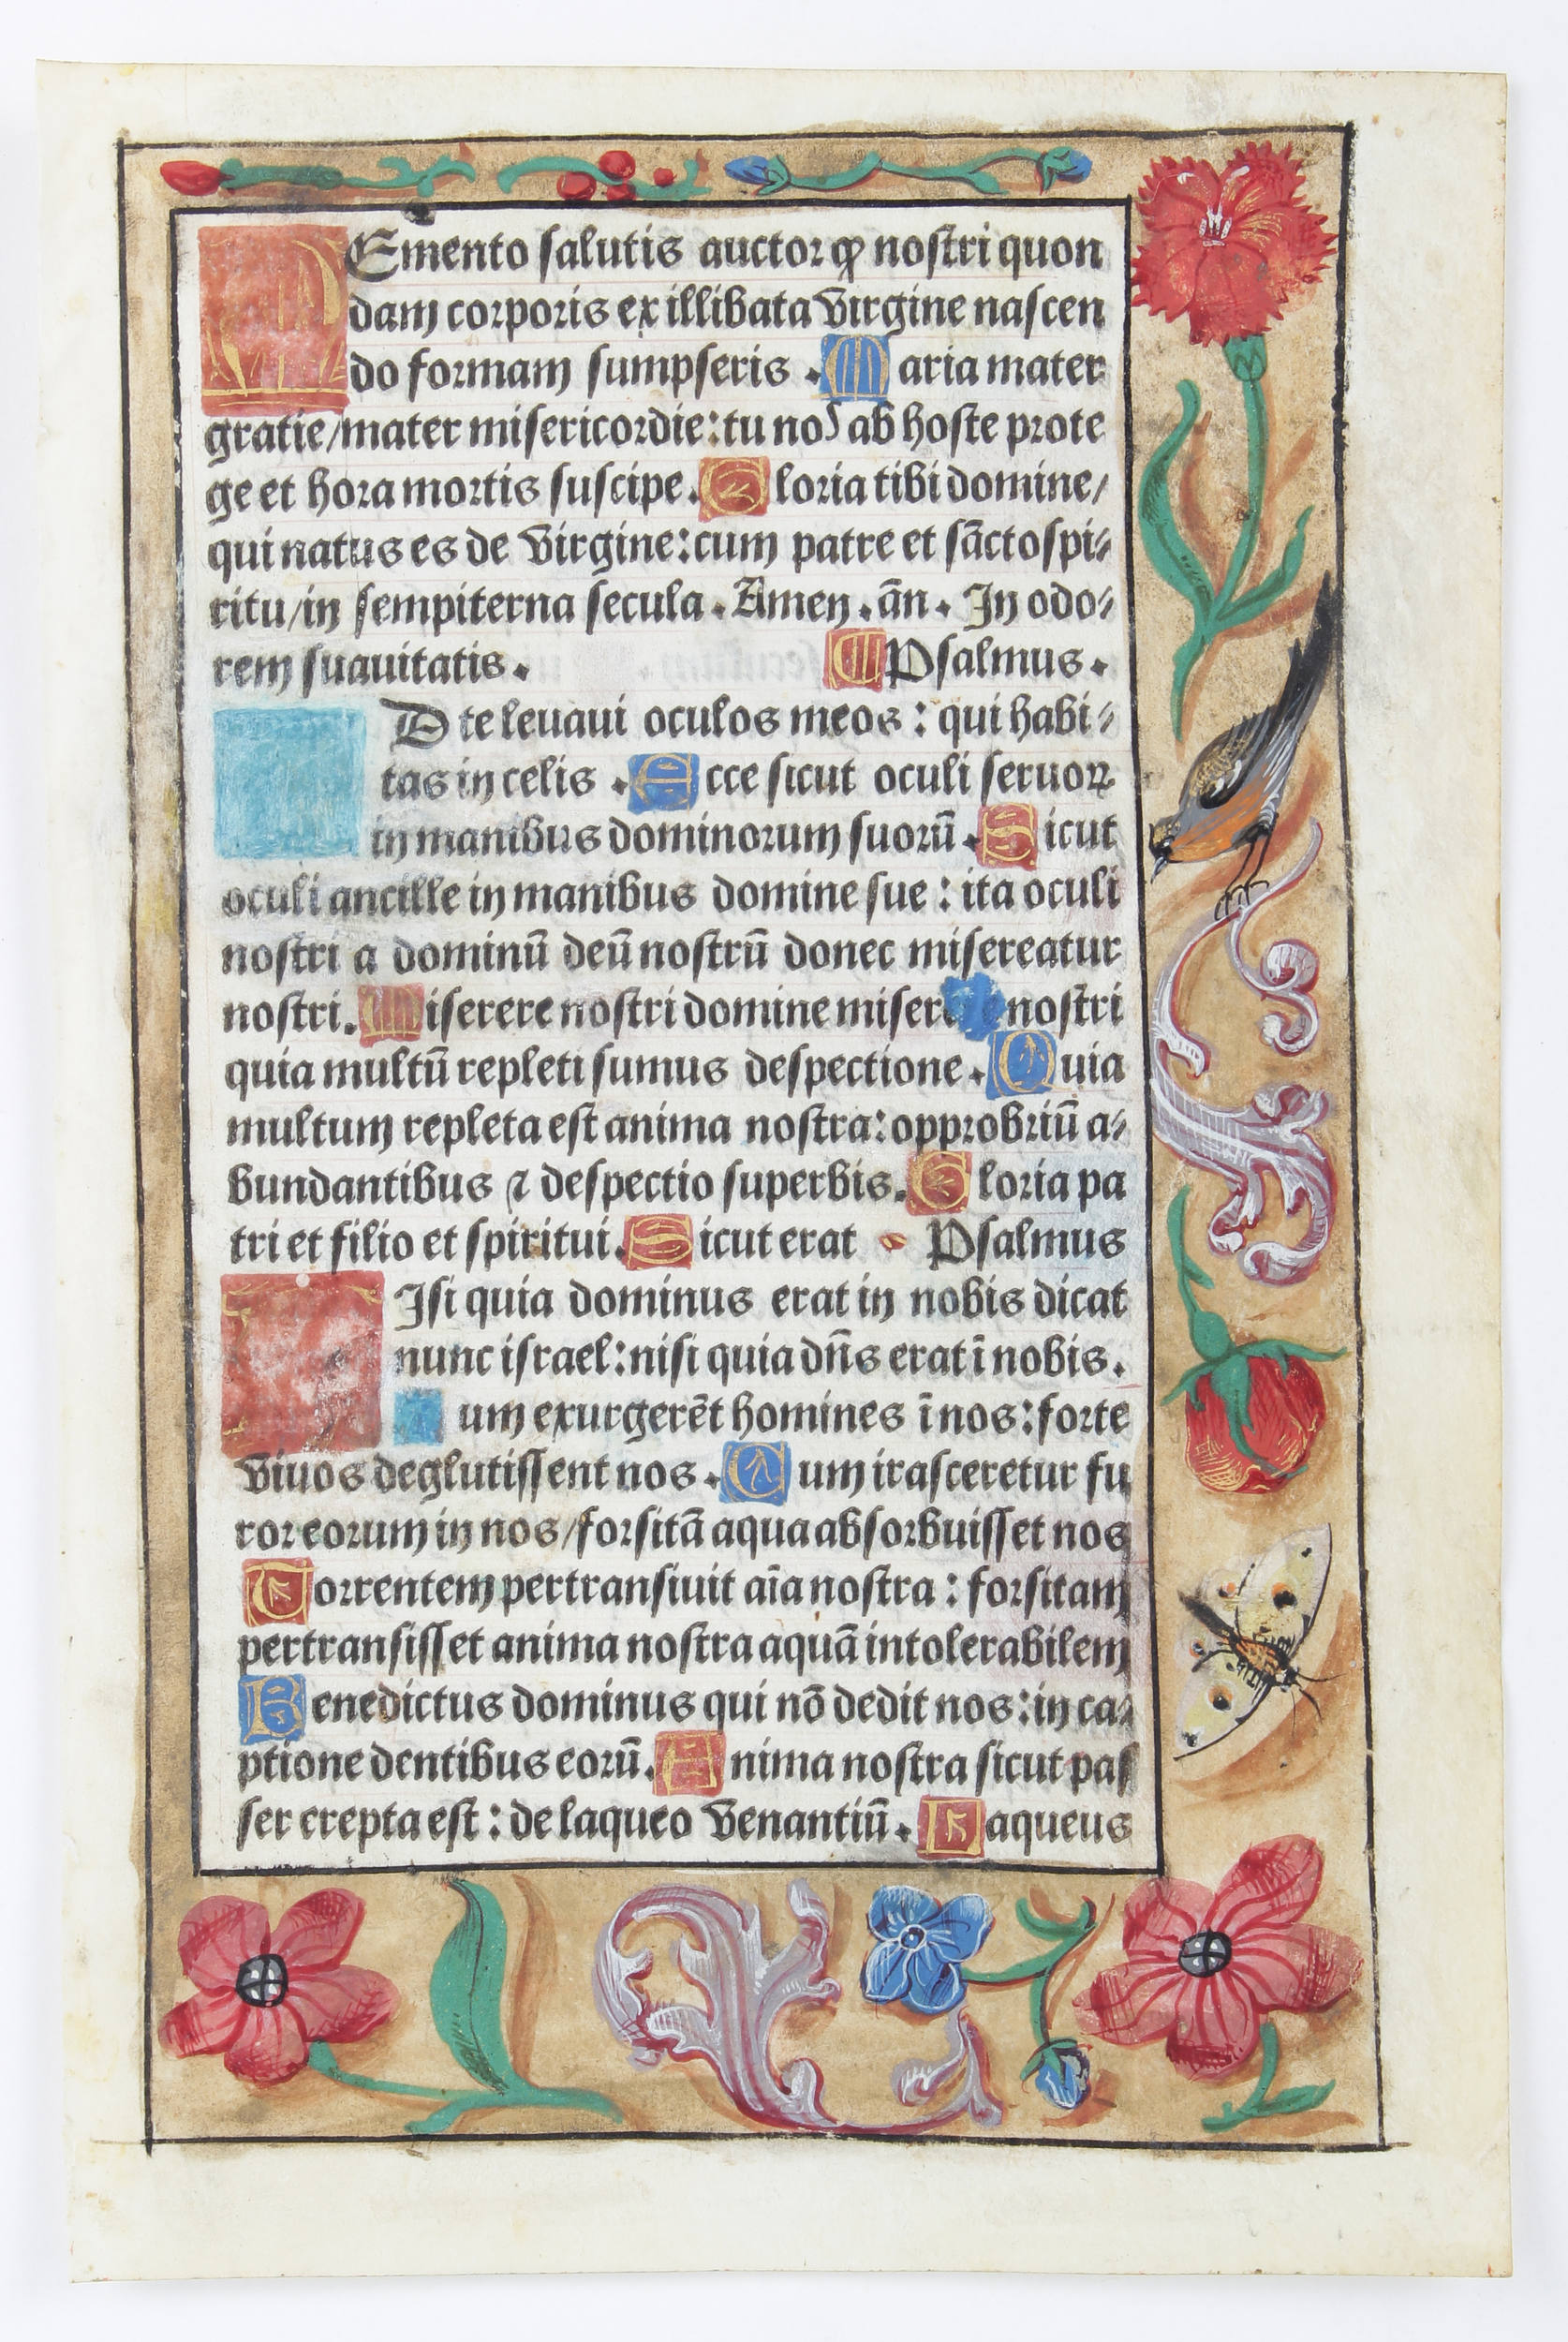 MEmento salutis auctor ꝙ nostri quon
dam corporis ex illibata virgine nascen
do formam sumpseris . Maria mater
gratie/mater misericordie: tu nos ab hoste prote
ge et hora mortis suscipe. Gloria tibi domine/
qui natus es de virgine: cum patre et sācto spi⸗
ritu/in sempiterna secula. Amen. ān. In odo⸗
rem suauitatis. ¶ Psalmus.
D te leuaui oculos meos: qui habi⸗
tas in celis. Ecce sicut oculi seruoꝝ
in manibus dominorum suorū. Sicut
oculi ancille in manibus domine sue: ita oculi
nostri a dominū deū nostrū donec misereatur
nostri. Miserere nostri domine miser e nostri
quia multū repleti sumus despectione. Quia
multum repleta est anima nostra: opprobriū a⸗
bundantibus ⁊ despectio superbis. Gloria pa
tri et filio et spiritui. Sicut erat Psalmus
Isi quia dominus erat in nobis dicat
nunc israel: nisi quia dn̄s erat ī nobis.
um exurgerēt homines ī nos: forte
viuos deglutissent nos. Cum irasceretur fu
ror eorum in nos/forsitā aqua absorbuisset nos
Torrentem pertransiuit aīa nostra: forsitam
pertransisset anima nostra aquā intolerabilem
Benedictus dominus qui nō dedit nos: in ca⸗
ptione dentibus eorū. Anima nostra sicut pas
ser erepta est: de laqueo venantiū. Laqueus